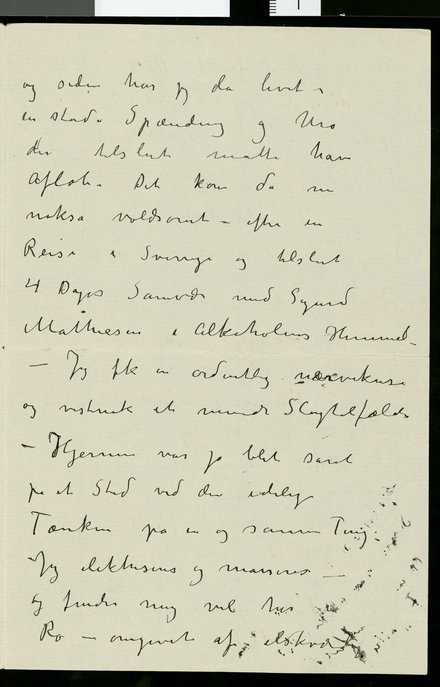 og siden har jeg da levet i
en stadig Spænding og Uro
der tilslut maatte have
Afløb. Det kom da nu
noksaa voldsomt – efter en
Reise i Sverige og tilslut
4 Dages Samvær med Sigurd
Mathiesen i Alkoholens Himmel.
– Jeg fik en ordentlig nervekrise
og vistnok et mindre Slagtilfælde
– Hjernen var jo blet saaret
paa et Sted ved den idelige
Tænken paa en og samme Ting.
Jeg elektriseres og masseres –
og finder mig vel her
Ro – omgivet af